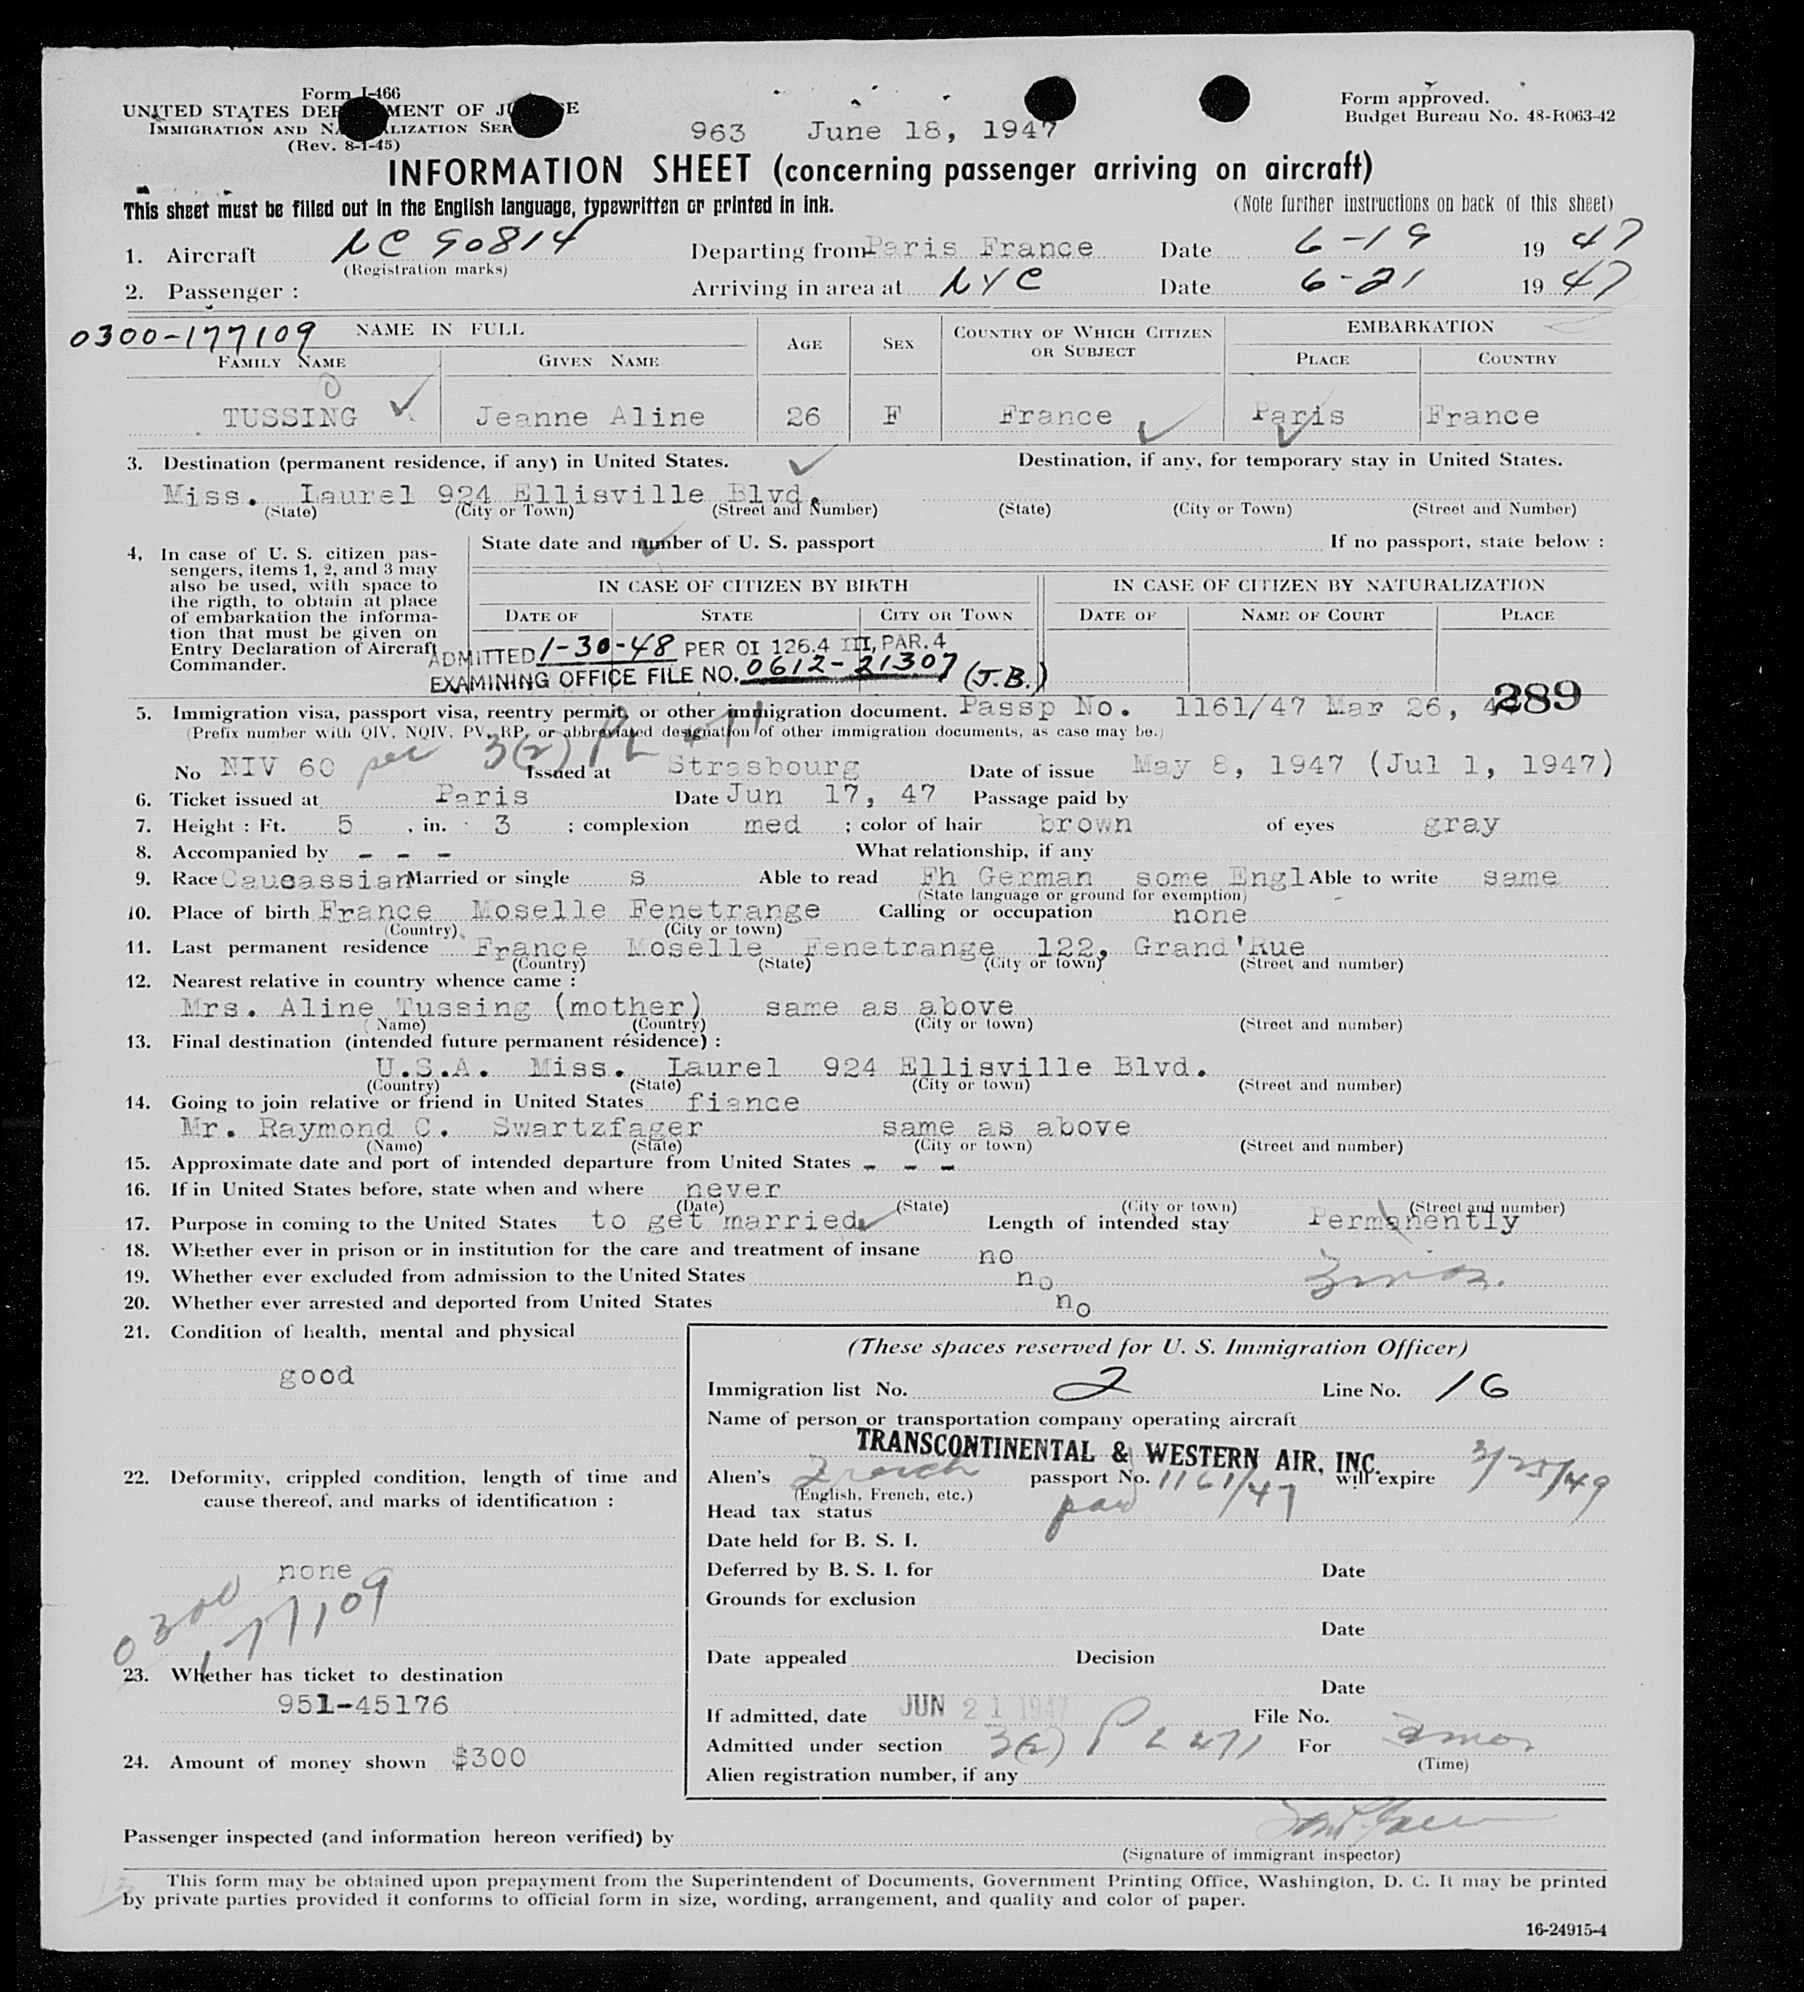 Form I-466
UNITED STATES DEP MENT OF JU E
IMMIGRATION AND NA LIZATION SER
(Rev. 8-1-45)
963 June 18, 1947
Form approved.
Budget Bureau No. 48-R063-42
INFORMATION SHEET (concerning passenger arriving on aircraft)
This sheet must be filled out in the English language, typewritten or printed in ink.
(Note further instructions on back of this sheet)
1. Aircraft NC 90814 Departing from Paris France Date 6-19 19 47
(Registration marks)
2. Passenger : Arriving in area at NYC Date 6-21 19 47
0300-177109 NAME IN FULL AGE SEX COUNTRY OF WHICH CITIZEN OR SUBJECT EMBARKATION
FAMILY NAME GIVEN NAME PLACE COUNTRY
TUSSING Jeanne Aline 26 F France Paris France
3. Destination (permanent residence, if any) in United States. Destination, if any, for temporary stay in United States.
Miss. Laurel 924 Ellisville Blvd.
(State) (City or Town) (Street and Number) (State) (City or Town) (Street and Number)
4. In case of U. S. citizen pas-
sengers, items 1, 2, and 3 may
also be used, with space to
the rigth, to obtain at place
of embarkation the informa-
tion that must be given on
Entry Declaration of Aircraft
Commander.
State date and number of U. S. passport If no passport, state below :
IN CASE OF CITIZEN BY BIRTH IN CASE OF CITIZEN BY NATURALIZATION
DATE OF STATE CITY OR TOWN DATE OF NAME OF COURT PLACE
ADMITTED 1-30-48 PER OI 126.4 III, PAR. 4
EXAMINING OFFICE FILE NO. 0612-21307 (J.B.)
5. Immigration visa, passport visa, reentry permit, or other immigration document. Passp No. 1161/47 Mar 26, 289
(Prefix number with QIV, NQIV, PV, RP, or abbreviated designation of other immigration documents, as case may be.)
per 3(2) PL 471
No NIV 60 Issued at Strasbourg Date of issue May 8, 1947 (Jul 1, 1947)
6. Ticket issued at Paris Date Jun 17, 47 Passage paid by
7. Height : Ft. 5 , in. 3 ; complexion med ; color of hair brown of eyes gray
8. Accompanied by - - - What relationship, if any
9. Race Caucassian Married or single s Able to read Fh German some Engl Able to write same
(State language or ground for exemption)
10. Place of birth France Moselle Fenetrange Calling or occupation none
(Country) (City or town)
11. Last permanent residence France Moselle Fenetrange 122, Grand'Rue
(Country) (State) (City or town) (Street and number)
12. Nearest relative in country whence came :
Mrs. Aline Tussing (mother) same as above
(Name) (Country) (City or town) (Street and number)
13. Final destination (intended future permanent résidence) :
U.S.A. Miss. Laurel 924 Ellisville Blvd.
(Country) (State) (City or town) (Street and number)
14. Going to join relative or friend in United States fiance
Mr. Raymond C. Swartzfager same as above
(Name) (State) (City or town) (Street and number)
15. Approximate date and port of intended departure from United States - - -
16. If in United States before, state when and where never
(Date) (State) (City or town) (Street and number)
17. Purpose in coming to the United States to get married Length of intended stay Permanently
18. Whether ever in prison or in institution for the care and treatment of insane no
19. Whether ever excluded from admission to the United States no
20. Whether ever arrested and deported from United States no
21. Condition of health, mental and physical
good
22. Deformity, crippled condition, length of time and
cause thereof, and marks of identification :
none
0300
177109
23. Whether has ticket to destination
951-45176
24. Amount of money shown $300
(These spaces reserved for U. S. Immigration Officer)
Immigration list No. 2 Line No. 16
Name of person or transportation company operating aircraft
TRANSCONTINENTAL & WESTERN AIR, INC.
Alien's French passport No. 1161/47 will expire 3/25/49
(English, French, etc.)
Head tax status paid
Date held for B. S. I.
Deferred by B. S. I. for Date
Grounds for exclusion
Date
Date appealed Decision
Date
If admitted, date JUN 21 1947 File No.
Admitted under section 3(2) PL 471 For 3 mos.
(Time)
Alien registration number, if any
Passenger inspected (and information hereon verified) by
(Signature of immigrant inspector)
This form may be obtained upon prepayment from the Superintendent of Documents, Government Printing Office, Washington, D. C. It may be printed
by private parties provided it conforms to official form in size, wording, arrangement, and quality and color of paper.
16-24915-4